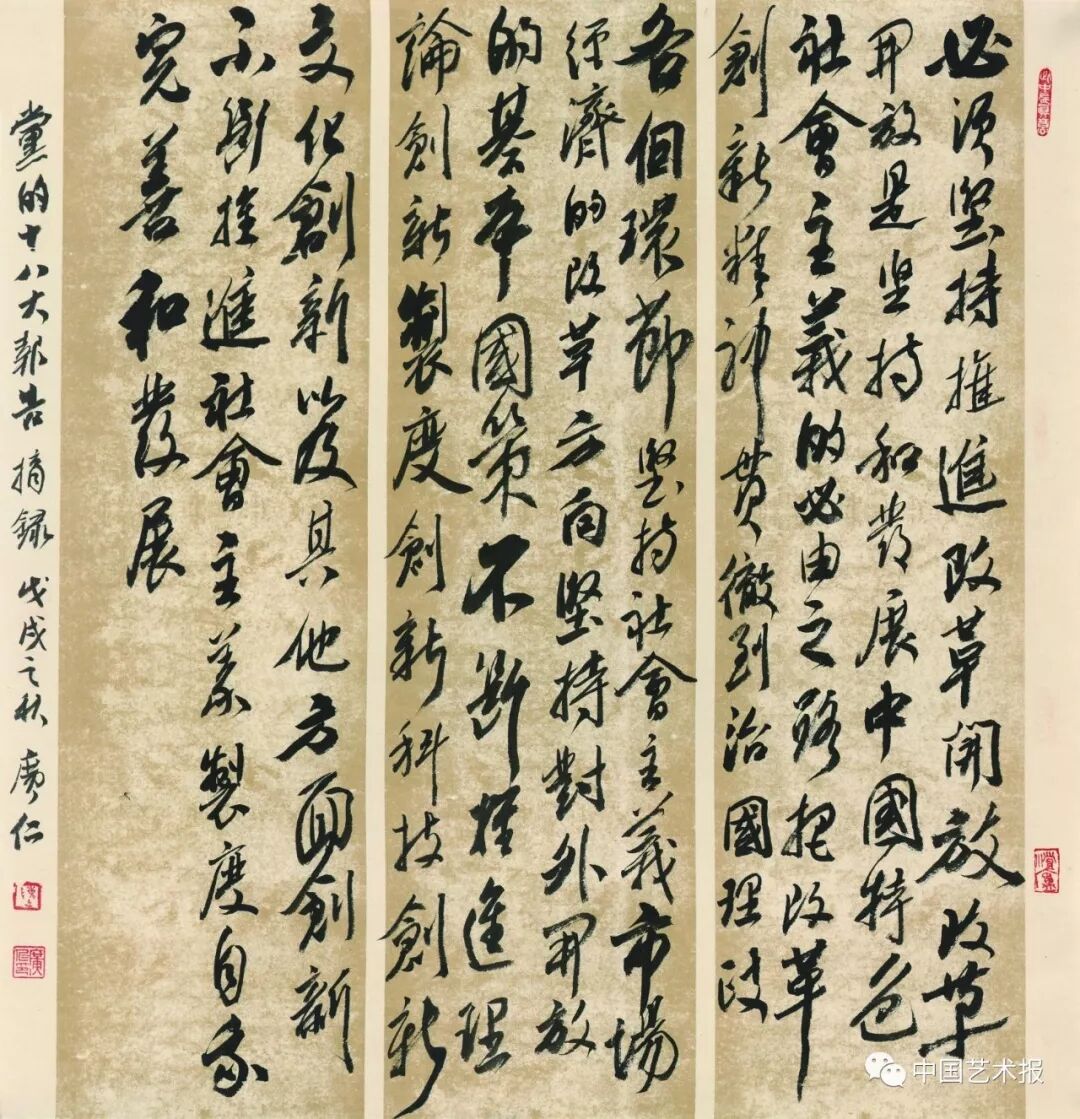 必須堅持推進改革開放改革
開放是坚持和發展中國特色
社會主義的必由之路把改革
創新精神貫徹到治國理政
各個環節堅持社會主義市場
經濟的改革方向堅持對外開放
的基本國策不斷推進理
論創新製度創新科技創新
文化創新以及其他方面創新
不斷推進社會主義製度自我
完善和發展
黨的十八大報告摘録戊戌之秋廣仁
中国艺术报